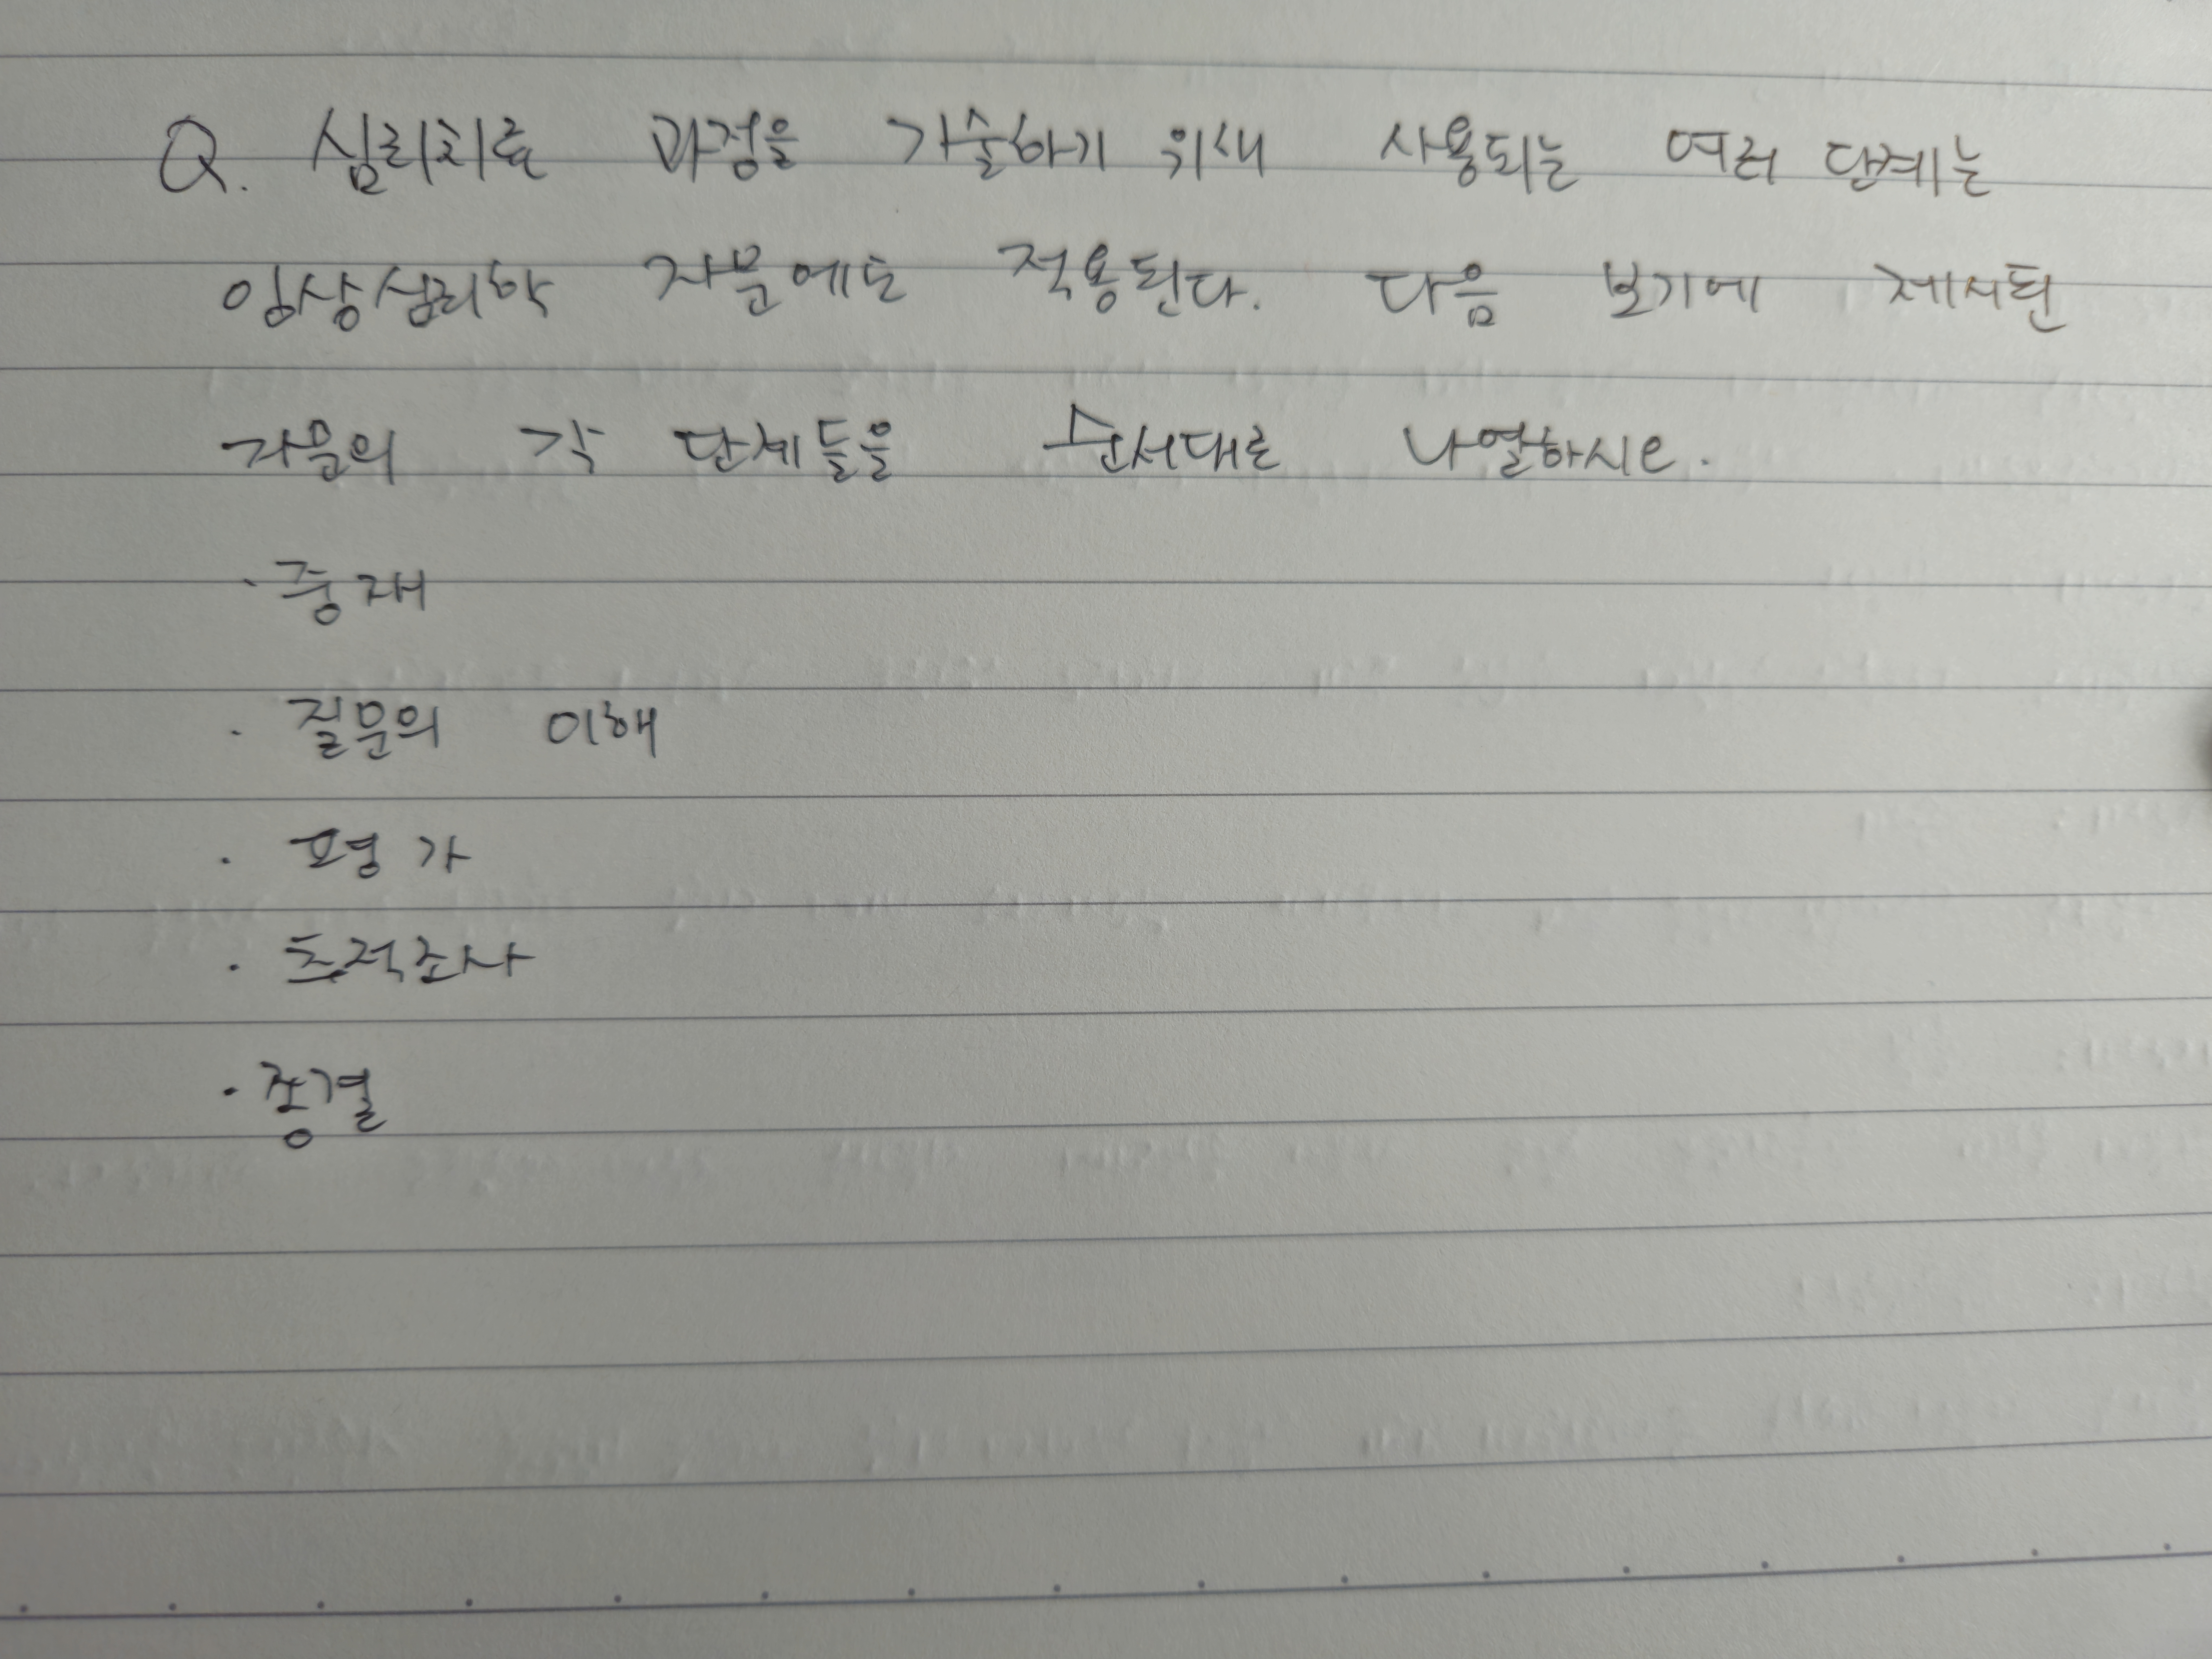 Q. 심리치료 과정을 기술하기 위새 사용되는 여러 단계는
임상심리학 자문에도 적용된다. 다음 보기에 제시된
자문의 각 단계들을 순서대로 나열하시오.
· 중재
· 질문의 이해
· 평가
· 추적조사
· 종결